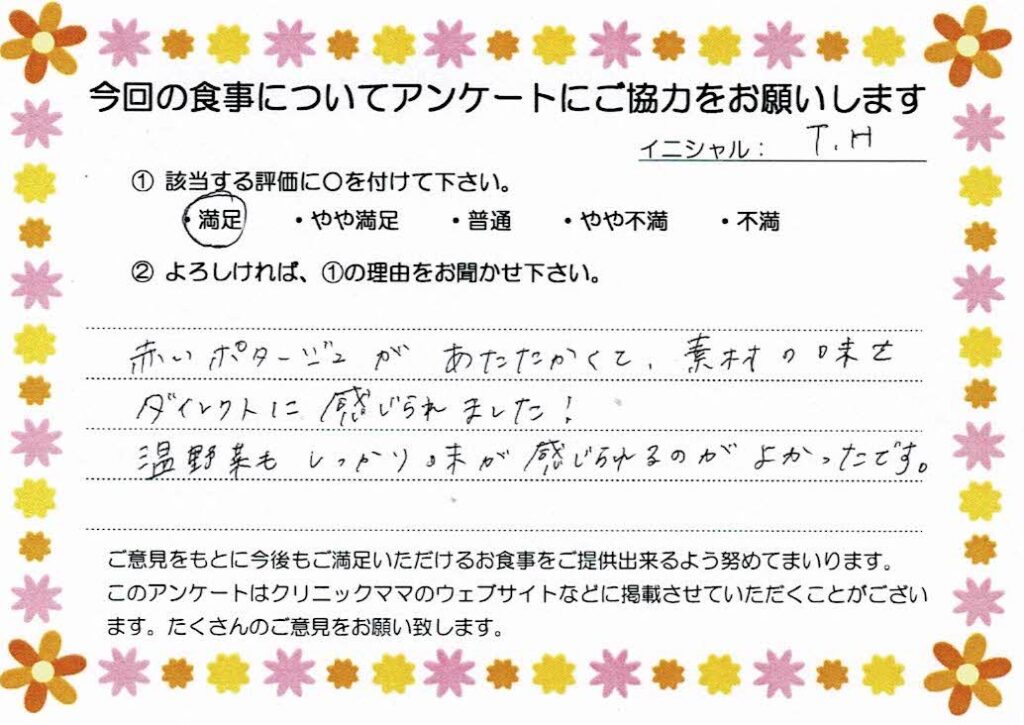 今回の食事についてアンケートにご協力をお願いします
イニシャル： T.H
① 該当する評価に〇を付けて下さい。
・満足 ・やや満足 ・普通 ・やや不満 ・不満
② よろしければ、①の理由をお聞かせ下さい。
赤いポタージュが あたたかくて、素材の味を
ダイレクトに感じられました！
温野菜も しっかり味が感じられるのがよかったです。
ご意見をもとに今後もご満足いただけるお食事をご提供出来るよう努めてまいります。
このアンケートはクリニックママのウェブサイトなどに掲載させていただくことがござい
ます。たくさんのご意見をお願い致します。